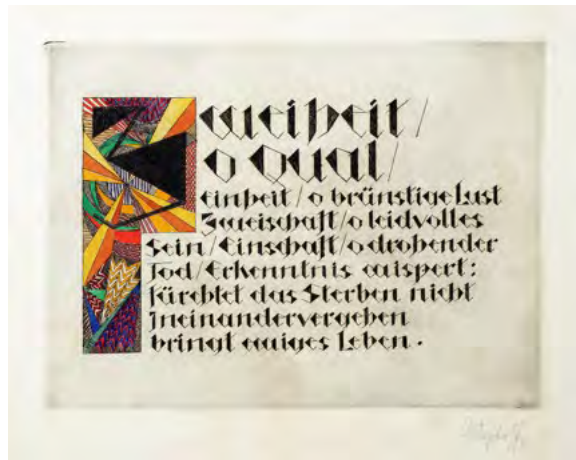 Zweiheit /
o Qual /
einheit / o brünstige Lust
Zweischaft / o leidvolles
Sein / Einschaft / o drohender
Tod / Erkenntnis wispert:
fürchtet das Sterben nicht
Ineinandervergehen
bringt ewiges Leben.